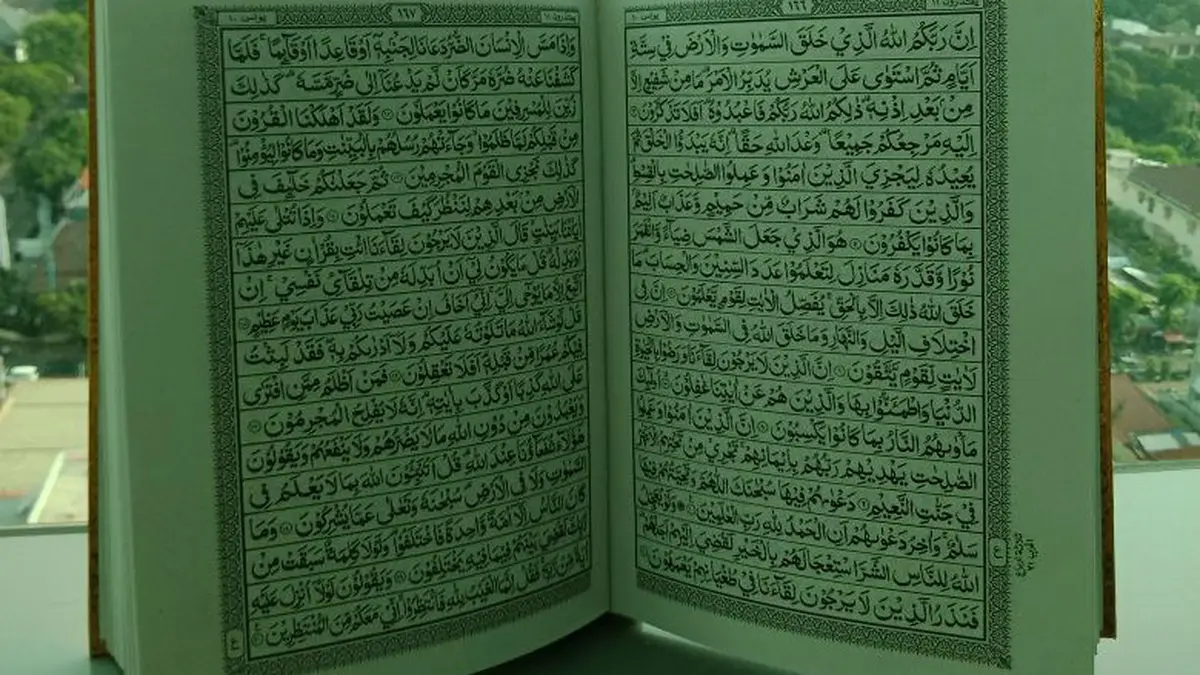 يونس ١٠
١٦٦
يعتذرون ١١
اِنَّ رَبَّكُمُ اللّٰهُ الَّذِيْ خَلَقَ السَّمٰوٰتِ وَالْاَرْضَ فِيْ سِتَّةِ
اَيَّامٍ ثُمَّ اسْتَوٰى عَلَى الْعَرْشِ يُدَبِّرُ الْاَمْرَ مَا مِنْ شَفِيْعٍ اِلَّا
مِنْ بَعْدِ اِذْنِهٖ ذٰلِكُمُ اللّٰهُ رَبُّكُمْ فَاعْبُدُوْهُ اَفَلَا تَذَكَّرُوْنَ
اِلَيْهِ مَرْجِعُكُمْ جَمِيْعًا وَعْدَ اللّٰهِ حَقًّا اِنَّهٗ يَبْدَؤُا الْخَلْقَ ثُمَّ
يُعِيْدُهٗ لِيَجْزِيَ الَّذِيْنَ اٰمَنُوْا وَعَمِلُوا الصّٰلِحٰتِ بِالْقِسْطِ
وَالَّذِيْنَ كَفَرُوْا لَهُمْ شَرَابٌ مِّنْ حَمِيْمٍ وَّعَذَابٌ اَلِيْمٌ
بِمَا كَانُوْا يَكْفُرُوْنَ هُوَ الَّذِيْ جَعَلَ الشَّمْسَ ضِيَاۤءً وَّالْقَمَرَ
نُوْرًا وَّقَدَّرَهٗ مَنَازِلَ لِتَعْلَمُوْا عَدَدَ السِّنِيْنَ وَالْحِسَابَ مَا
خَلَقَ اللّٰهُ ذٰلِكَ اِلَّا بِالْحَقِّ يُفَصِّلُ الْاٰيٰتِ لِقَوْمٍ يَّعْلَمُوْنَ اِنَّ فِى
اخْتِلَافِ الَّيْلِ وَالنَّهَارِ وَمَا خَلَقَ اللّٰهُ فِى السَّمٰوٰتِ وَالْاَرْضِ
لَاٰيٰتٍ لِّقَوْمٍ يَّتَّقُوْنَ اِنَّ الَّذِيْنَ لَا يَرْجُوْنَ لِقَاۤءَنَا وَرَضُوْا بِالْحَيٰوةِ
الدُّنْيَا وَاطْمَـَٔنُّوْا بِهَا وَالَّذِيْنَ هُمْ عَنْ اٰيٰتِنَا غٰفِلُوْنَ اُولٰۤىِٕكَ
مَأْوٰىهُمُ النَّارُ بِمَا كَانُوْا يَكْسِبُوْنَ اِنَّ الَّذِيْنَ اٰمَنُوْا وَعَمِلُوا
الصّٰلِحٰتِ يَهْدِيْهِمْ رَبُّهُمْ بِاِيْمَانِهِمْ تَجْرِيْ مِنْ تَحْتِهِمُ الْاَنْهٰرُ
فِيْ جَنّٰتِ النَّعِيْمِ دَعْوٰىهُمْ فِيْهَا سُبْحٰنَكَ اللّٰهُمَّ وَتَحِيَّتُهُمْ فِيْهَا
سَلٰمٌ وَاٰخِرُ دَعْوٰىهُمْ اَنِ الْحَمْدُ لِلّٰهِ رَبِّ الْعٰلَمِيْنَ وَلَوْ يُعَجِّلُ
اللّٰهُ لِلنَّاسِ الشَّرَّ اسْتِعْجَالَهُمْ بِالْخَيْرِ لَقُضِيَ اِلَيْهِمْ اَجَلُهُمْ
فَنَذَرُ الَّذِيْنَ لَا يَرْجُوْنَ لِقَاۤءَنَا فِيْ طُغْيَانِهِمْ يَعْمَهُوْنَ
يونس ١٠
١٦٧
يعتذرون ١١
وَاِذَا مَسَّ الْاِنْسَانَ الضُّرُّ دَعَانَا لِجَنْۢبِهٖٓ اَوْ قَاعِدًا اَوْ قَاۤىِٕمًا فَلَمَّا
كَشَفْنَا عَنْهُ ضُرَّهٗ مَرَّ كَاَنْ لَّمْ يَدْعُنَا اِلٰى ضُرٍّ مَّسَّهٗ كَذٰلِكَ
زُيِّنَ لِلْمُسْرِفِيْنَ مَا كَانُوْا يَعْمَلُوْنَ وَلَقَدْ اَهْلَكْنَا الْقُرُوْنَ
مِنْ قَبْلِكُمْ لَمَّا ظَلَمُوْا وَجَاۤءَتْهُمْ رُسُلُهُمْ بِالْبَيِّنٰتِ وَمَا كَانُوْا لِيُؤْمِنُوْا
كَذٰلِكَ نَجْزِى الْقَوْمَ الْمُجْرِمِيْنَ ثُمَّ جَعَلْنٰكُمْ خَلٰۤىِٕفَ فِى
الْاَرْضِ مِنْۢ بَعْدِهِمْ لِنَنْظُرَ كَيْفَ تَعْمَلُوْنَ وَاِذَا تُتْلٰى عَلَيْهِمْ
اٰيَاتُنَا بَيِّنٰتٍ قَالَ الَّذِيْنَ لَا يَرْجُوْنَ لِقَاۤءَنَا ائْتِ بِقُرْاٰنٍ غَيْرِ هٰذَآ
اَوْ بَدِّلْهُ قُلْ مَا يَكُوْنُ لِيْٓ اَنْ اُبَدِّلَهٗ مِنْ تِلْقَاۤئِ نَفْسِيْ اِنْ
اَتَّبِعُ اِلَّا مَا يُوْحٰٓى اِلَيَّ اِنِّيْٓ اَخَافُ اِنْ عَصَيْتُ رَبِّيْ عَذَابَ يَوْمٍ عَظِيْمٍ
قُلْ لَّوْ شَاۤءَ اللّٰهُ مَا تَلَوْتُهٗ عَلَيْكُمْ وَلَآ اَدْرٰىكُمْ بِهٖ فَقَدْ لَبِثْتُ
فِيْكُمْ عُمُرًا مِّنْ قَبْلِهٖ اَفَلَا تَعْقِلُوْنَ فَمَنْ اَظْلَمُ مِمَّنِ افْتَرٰى
عَلَى اللّٰهِ كَذِبًا اَوْ كَذَّبَ بِاٰيٰتِهٖ اِنَّهٗ لَا يُفْلِحُ الْمُجْرِمُوْنَ
وَيَعْبُدُوْنَ مِنْ دُوْنِ اللّٰهِ مَا لَا يَضُرُّهُمْ وَلَا يَنْفَعُهُمْ وَيَقُوْلُوْنَ
هٰٓؤُلَاۤءِ شُفَعَاۤؤُنَا عِنْدَ اللّٰهِ قُلْ اَتُنَبِّـُٔوْنَ اللّٰهَ بِمَا لَا يَعْلَمُ فِى
السَّمٰوٰتِ وَلَا فِى الْاَرْضِ سُبْحٰنَهٗ وَتَعٰلٰى عَمَّا يُشْرِكُوْنَ وَمَا
كَانَ النَّاسُ اِلَّآ اُمَّةً وَّاحِدَةً فَاخْتَلَفُوْا وَلَوْلَا كَلِمَةٌ سَبَقَتْ مِنْ
رَّبِّكَ لَقُضِيَ بَيْنَهُمْ فِيْمَا فِيْهِ يَخْتَلِفُوْنَ وَيَقُوْلُوْنَ لَوْلَآ اُنْزِلَ عَلَيْهِ
اٰيَةٌ مِّنْ رَّبِّهٖ فَقُلْ اِنَّمَا الْغَيْبُ لِلّٰهِ فَانْتَظِرُوْا اِنِّيْ مَعَكُمْ مِّنَ الْمُنْتَظِرِيْنَ